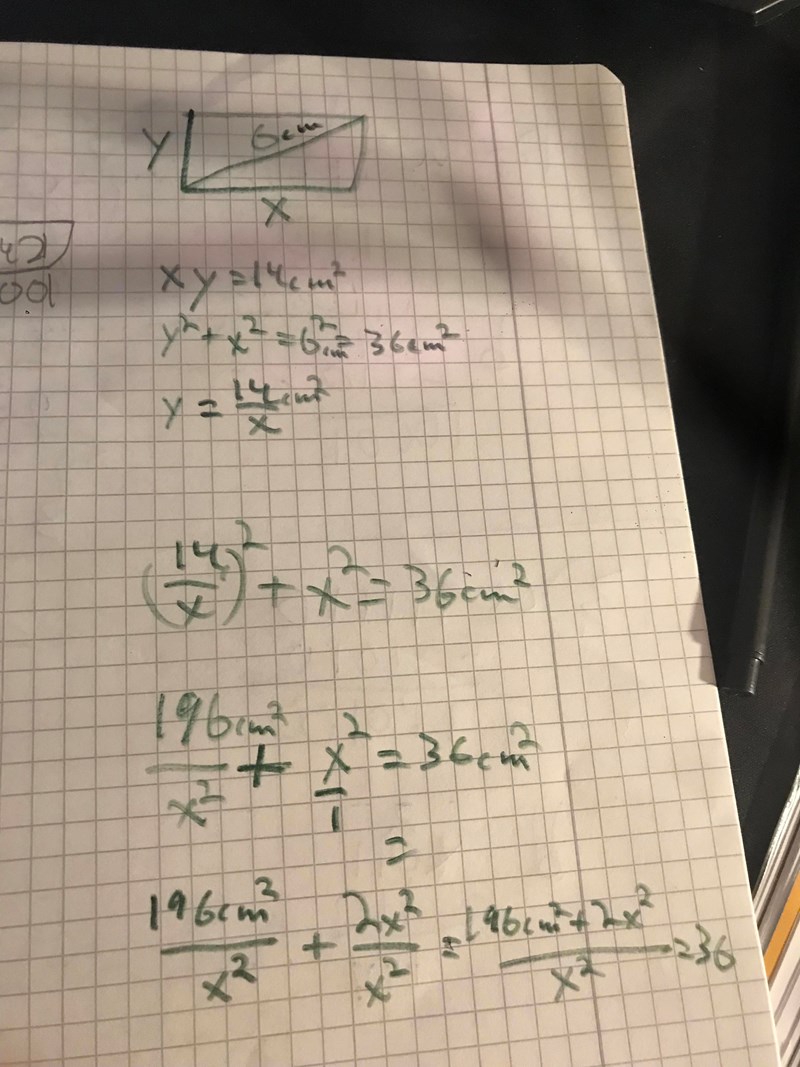 6cm
y
x
xy = 14cm²
y² + x² = 6²cm = 36cm²
y = 14/x cm²
(14/x)² + x² = 36cm²
196cm²/x² + x²/1 = 36cm²
=
196cm²/x² + 2x²/x² = 196cm² + 2x²/x² = 36